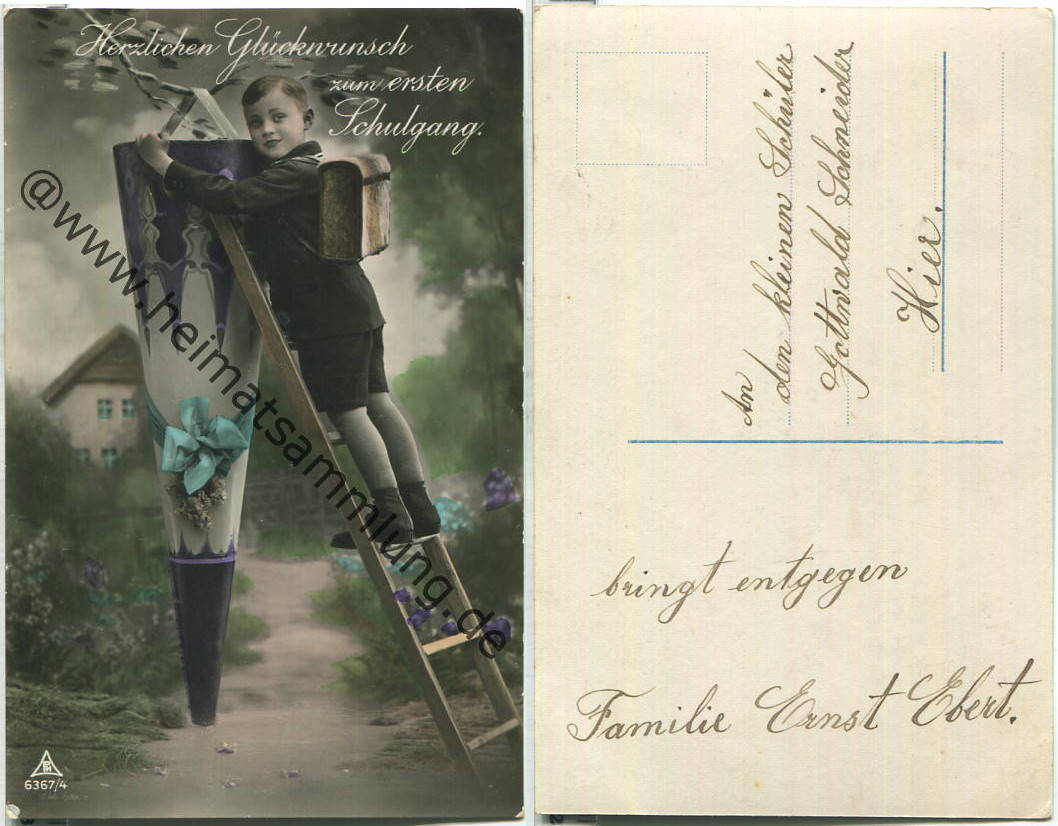 Herzlichen Glückwunsch
zum ersten
Schulgang.
@www.heimatsammlung.de
PH
6367/4
An
den kleinen Schüler
Gottwald Schneider
Hier.
bringt entgegen
Familie Ernst Ebert.